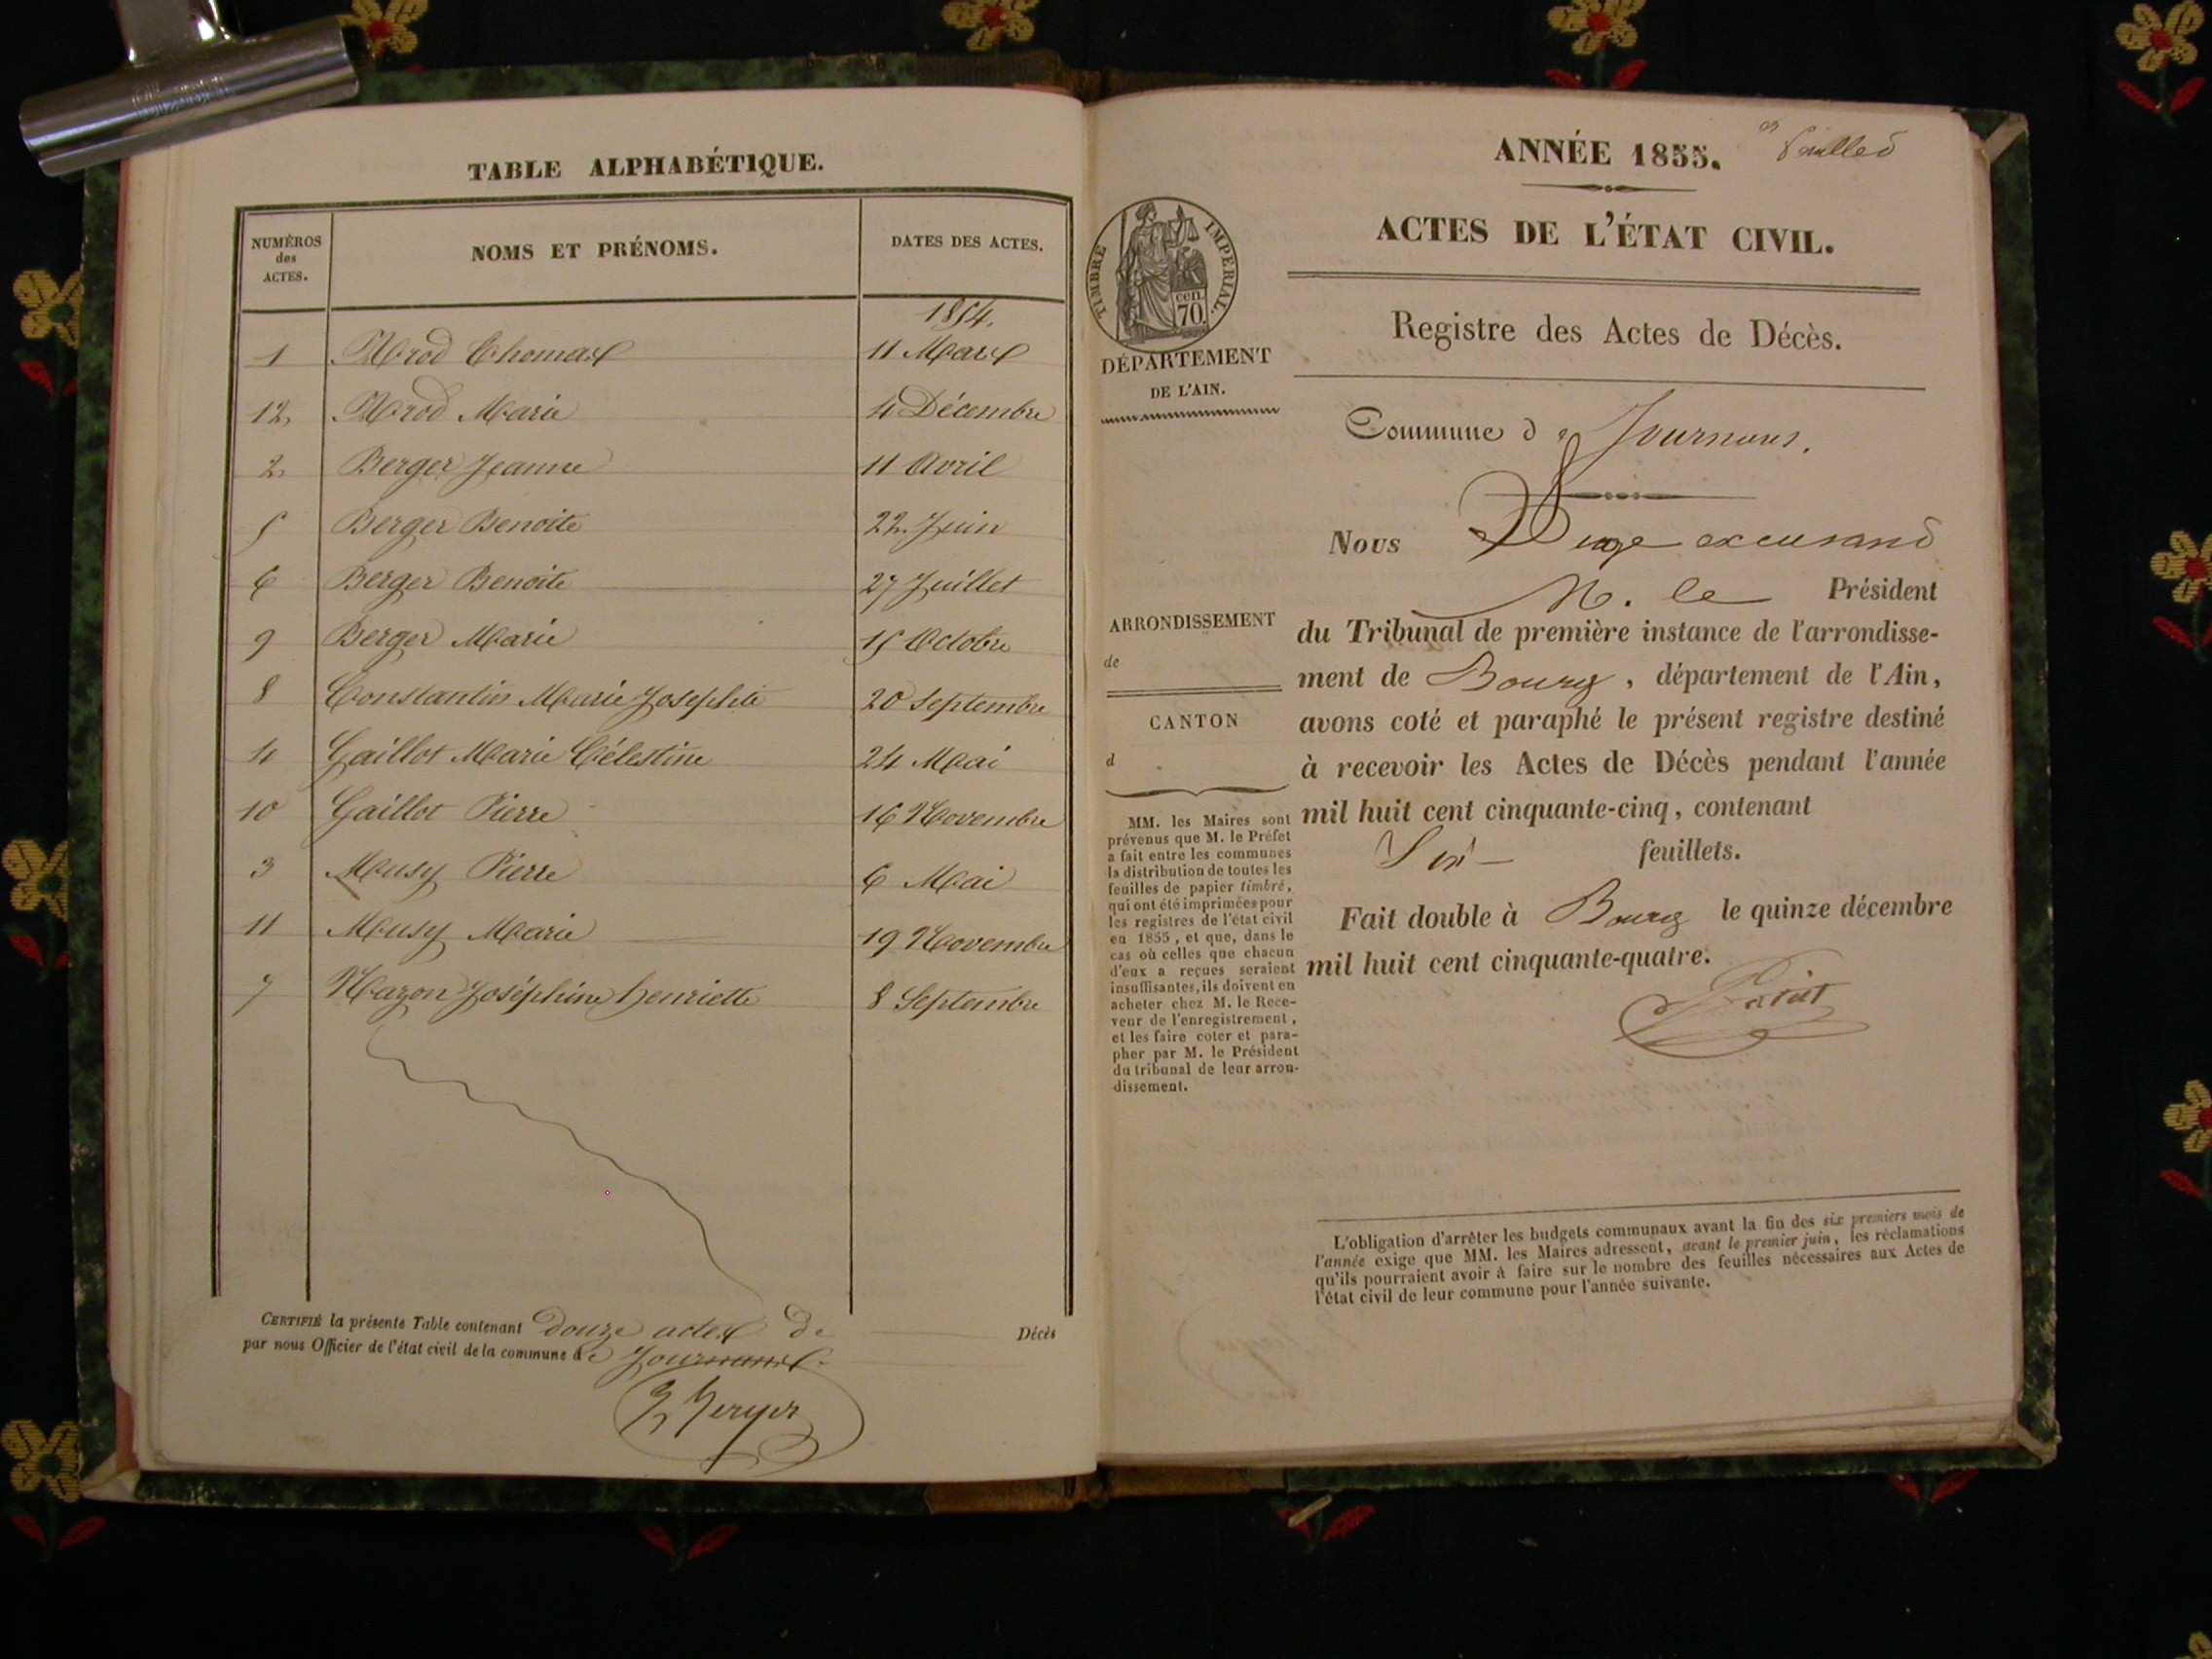 TABLE ALPHABÉTIQUE.
NUMÉROS
des
ACTES.
NOMS ET PRÉNOMS.
DATES DES ACTES.
1854.
1 Thomas 11 Mars
12 Marie 4 Décembre
2 Berger Jeanne 11 Avril
5 Berger Benoite 22 Juin
6 Berger Benoite 27 Juillet
9 Berger Marie 15 Octobre
8 Constantin Marie Josephte 20 Septembre
4 Gaillot Marie Célestine 24 Mai
10 Gaillot Pierre 16 Novembre
3 Musy Pierre 6 Mai
11 Musy Marie 19 Novembre
7 Nazon Joséphine henriette 8 Septembre
CERTIFIÉ la présente Table contenant douze actes de Décès
par nous Officier de l'état civil de la commune de Journans
ANNÉE 1855.
ACTES DE L'ÉTAT CIVIL.
TIMBRE IMPÉRIAL.
cen.
70
DÉPARTEMENT
DE L'AIN.
Registre des Actes de Décès.
Commune de Journans.
Nous Juge
M. le Président
du Tribunal de première instance de l'arrondisse-
ment de Bourg, département de l'Ain,
avons coté et paraphé le présent registre destiné
à recevoir les Actes de Décès pendant l'année
mil huit cent cinquante-cinq, contenant
Six feuillets.
Fait double à Bourg le quinze décembre
mil huit cent cinquante-quatre.
ARRONDISSEMENT
de
CANTON
d
MM. les Maires sont
prévenus que M. le Préfet
a fait entre les communes
la distribution de toutes les
feuilles de papier timbré,
qui ont été imprimées pour
les registres de l'état civil
en 1855, et que, dans le
cas où celles que chacun
d'eux a reçues seraient
insuffisantes, ils doivent en
acheter chez M. le Rece-
veur de l'enregistrement,
et les faire coter et para-
pher par M. le Président
du tribunal de leur arron-
dissement.
L'obligation d'arrêter les budgets communaux avant la fin des six premiers mois de
l'année exige que MM. les Maires adressent, avant le premier juin, les réclamations
qu'ils pourraient avoir à faire sur le nombre des feuilles nécessaires aux Actes de
l'état civil de leur commune pour l'année suivante.